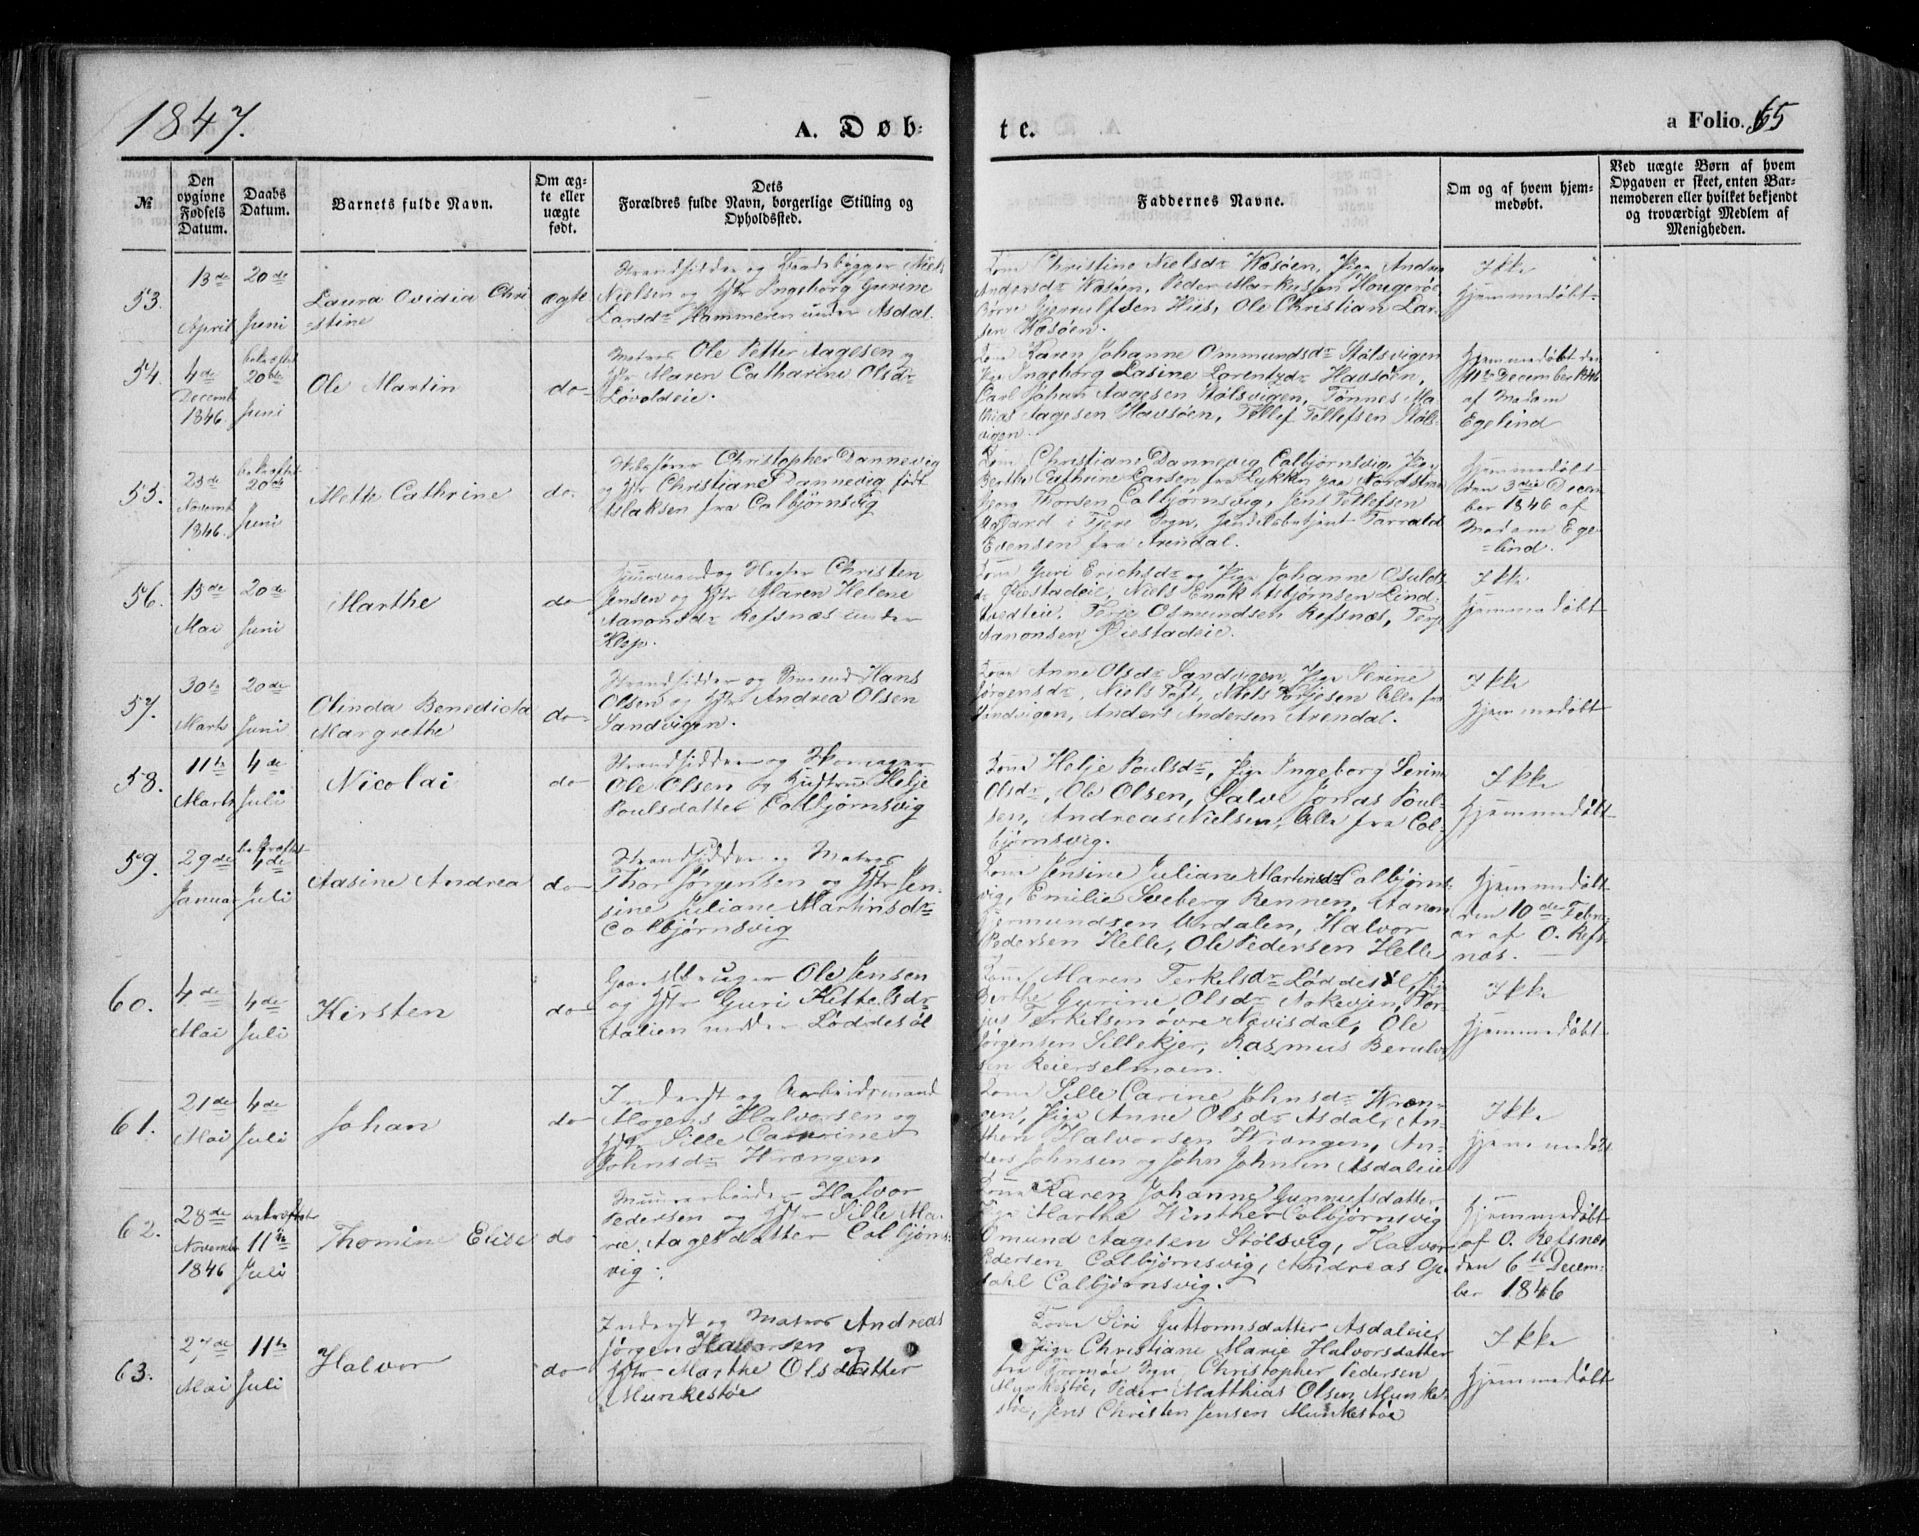 1847.
A. Døb-
te.
a Folio. 65
№
Den opgivne Fødsels Datum.
Daabs Datum.
Barnets fulde Navn.
Om ægte eller uægte født.
Dets Forældres fulde Navn, borgerlige Stilling og Opholdsted.
Faddernes Navne.
Om og af hvem hjemmedøbt.
Ved uægte Børn af hvem Opgaven er skeet, enten Barnemoderen eller hvilket bekjendt og troværdigt Medlem af Menigheden.
53.
13de April
20de Juni
Laura Ovidia Chri
stine
ægte
Strandsidder og Baadsbygger Niels
Nielsen og Hstr Ingeborg Gurine
Larsdr Hammeren under Asdal.
Kone Christine Nielsdr Wasøen, Pige Andrea
Andersdr Wasøen, Peder Markussen Hougerøe
Børre Gjerulfsen Hiis, Ole Christian Lar
sen Wasøen.
Ikke
hjemmedøbt
54.
4de Decemb 1846.
bekræftet 20de Juni
Ole Martin
do
Matros Ole Petter Aagesen og
Hstr Maren Cathrine Olsdr
Løvoldeie.
Kone Karen Johanne Ommundsdr Stølsvigen
Pige Ingeborg Lasine Lorentzdr Havsøen,
Carl Johan Aagesen Stølsvigen, Tønnes Ma
Aagesen Havsøen, Tellef Tellefsen Støls-
vigen.
Hjemmedøbt den
11te December 1846
af Madam
Egelind
55.
23de Novemb 1846.
bekræftet 20de Juni
Mette Cathrine
do.
Skibsfører Christopher Dannevig
og Hstr Christiane Dannevig født
Islaksen fra Colbjørnsvig
Kone Christiane Dannevig Colbjørnsvig, Pige
Berthe Cathrine Larsen fra Lykken paa Nordstrand
Georg Thorsen Colbjørnsvig, Jens Tellefsen
i Fjere Sogn, Handelsbetjent Tarrald
Evensen fra Arendal.
Hjemmedøbt
den 3die Decem
ber 1846 af
Madam Ege
lind.
56.
15de Mai
20de Juni
Marthe
do
Huusmand og Christen
Jensen og Hstr Maren Helene
Aanonsdr Refsnæs under
Klop.
Kone Guri Erichsdr og Pige Johanne Osulds
dr Øiestadeie, Niels Enok Asbjørnsen Lind
tvedteie, Terje Osmundsen Refsnæs, Terje
Aanonsen Øiestadeie.
Ikke
hjemmedøbt
57.
30te Marts
20de Juni
Olinda Benedicta
Margrethe
do
Strandsidder og Hans
Olsen og Hstr Andrea Olsen
Sandvigen.
Kone Anne Olsdr Sandvigen, Pige Serine
Jørgensdr, Niels Toft, Niels Terjesen Alle fra
Sandvigen, Anders Andersen Arendal.
Ikke
hjemmedøbt
58.
11te Marts
4de Juli
Nicolai
do
Strandsidder og Skomager
Ole Olsen og Hustru Helje
Poulsdatter Colbjørnsvig
Kone Helje Poulsdr, Pige Ingeborg Serine
Olsdr, Ole Olsen, Salve Jonas Poul-
sen, Andreas Nielsen, Alle fra Col-
bjørnsvig.
Ikke
hjemmedøbt
59.
29de Januar
bekræftet 4de Juli
Aasine Andrea
do
Strandsidder og Matros
Thor Jørgensen og Hstr Jen-
sine Juliane Martinsdr
Colbjørnsvig
Kone Jensine Juliane Martinsdr Colbjørns
vig, Emilie Sveberg Rennen, Aanon
Germundsen Urdalen, Halvor
Pedersen Helle, Ole Pedersen Helle
Hjemmedøbt
den 10de Febru
ar af O. Refs
næs.
60.
4de Mai
4de Juli
Kirsten
do
Gaardbruger Ole Jensen
og Hstr Guri Kettelsdr
Stalien under Løddesøl
Kone Maren Terkelsdr Løddesøl, Pige
Berthe Gurine Olsdr Nokevjen, Tor-
jus Terkelsen øvre Nævisdal, Ole
Jørgensen Sillekjer, Rasmus Berulv
sen Reierselmoen.
Ikke
hjemmedøbt
61.
21de Mai
4de Juli
Johan
do
Inderst og Arbeidsmand
Mogens Halvorsen og
Hstr Sille Carine
Johnsdr Wrængen
Kone Sille Carine Johnsdr Wræn-
gen, Pige Anne Olsdr Asdal, An-
thon Halvorsen Wrængen, An-
ders Johnsen og John Johnsen Asdaleie
Ikke
hjemmedøbt
62.
28de November 1846
bekræftet 11te Juli
Thomine Elise
do
Muurarbeider Halvor
Pedersen og Hstr Sille Ma-
rie Aagesdatter Colbjørns-
vig.
Kone Karen Johanne Gunnulfsdatter
Pige Marthe Winther Colbjørnsvig
Omund Aagesen Stølsvig, Halvor
Pedersen Colbjørnsvig, Andreas Op-
dahl Colbjørnsvig.
Hjemmedøbt
af O. Refsnæs
den 6te Decem-
ber 1846
63.
27de Mai
11te Juli
Halvor
do
Inderst og Matros Andreas
Jørgen Halvorsen og
Hstr Marthe Olsdatter
Munkestøe
Kone Siri Guttormsdatter Asdaleie,
Pige Christiane Marie Halvorsdatter
fra Tromøe Sogn, Christopher Pedersen
Myrkestøe, Peder Matthias Olsen Munke-
støe, Jens Christen Jensen Munkestøe
Ikke
hjemmedøbt